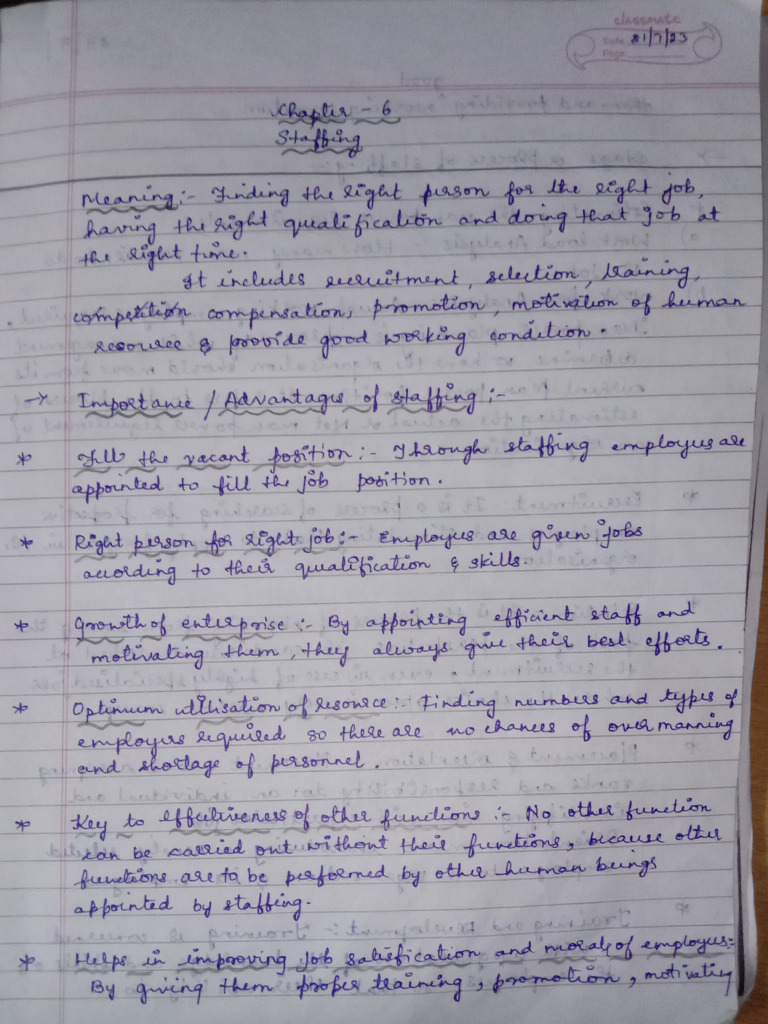 classmate
Date 21/7/23
Page
Chapter - 6
Staffing
Meaning:- Finding the right person for the right job,
having the right qualification and doing that job at
the right time.
It includes recruitment, selection, training,
compensation, promotion, motivation of human
resource & provide good working condition.
→ Importance / Advantages of staffing:-
* Fill the vacant position:- Through staffing employees are
appointed to fill the job position.
* Right person for right job:- Employees are given jobs
according to their qualification & skills.
* Growth of enterprise:- By appointing efficient staff and
motivating them, they always give their best efforts.
* Optimum utilisation of resource:- Finding numbers and types of
employees required so there are no chances of over manning
and shortage of personnel.
* Key to effectiveness of other functions:- No other function
can be carried out without their functions, because other
functions are to be performed by other human beings
appointed by staffing.
* Helps in improving job satisfication and morale of employees:-
By giving them proper training, promotion, motivating